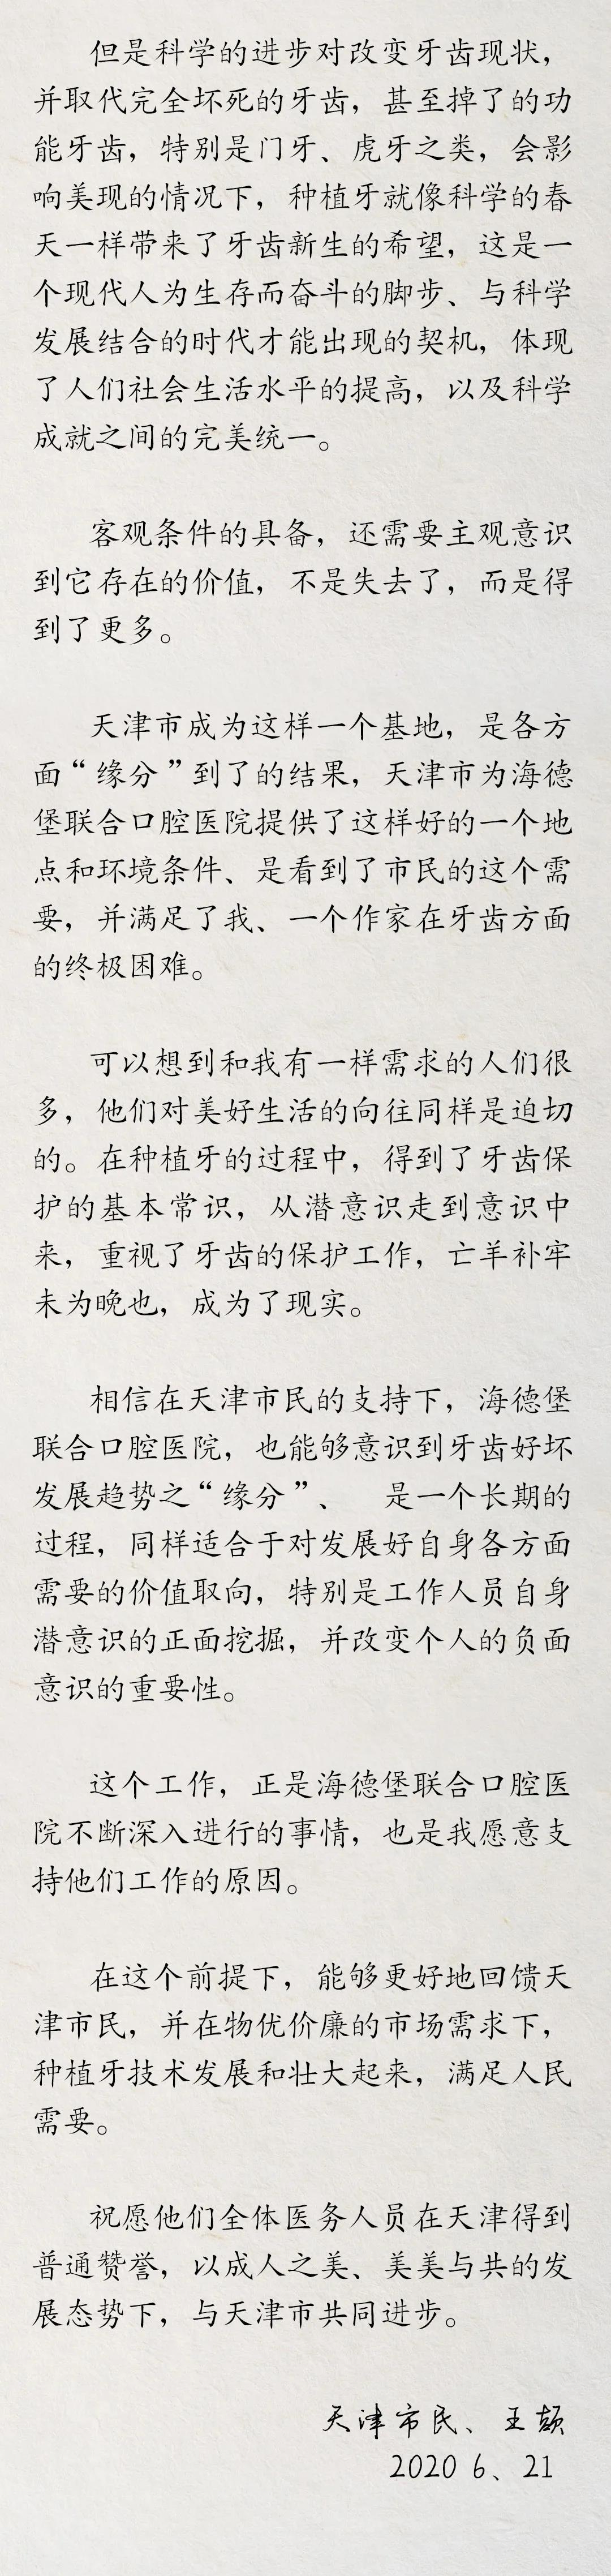 但是科学的进步对改变牙齿现状，
并取代完全坏死的牙齿，甚至掉了的功
能牙齿，特别是门牙、虎牙之类，会影
响美现的情况下，种植牙就像科学的春
天一样带来了牙齿新生的希望，这是一
个现代人为生存而奋斗的脚步、与科学
发展结合的时代才能出现的契机，体现
了人们社会生活水平的提高，以及科学
成就之间的完美统一。
客观条件的具备，还需要主观意识
到它存在的价值，不是失去了，而是得
到了更多。
天津市成为这样一个基地，是各方
面“缘分”到了的结果，天津市为海德
堡联合口腔医院提供了这样好的一个地
点和环境条件、是看到了市民的这个需
要，并满足了我、一个作家在牙齿方面
的终极困难。
可以想到和我有一样需求的人们很
多，他们对美好生活的向往同样是迫切
的。在种植牙的过程中，得到了牙齿保
护的基本常识，从潜意识走到意识中
来，重视了牙齿的保护工作，亡羊补牢
未为晚也，成为了现实。
相信在天津市民的支持下，海德堡
联合口腔医院，也能够意识到牙齿好坏
发展趋势之“缘分”、 是一个长期的
过程，同样适合于对发展好自身各方面
需要的价值取向，特别是工作人员自身
潜意识的正面挖掘，并改变个人的负面
意识的重要性。
这个工作，正是海德堡联合口腔医
院不断深入进行的事情，也是我愿意支
持他们工作的原因。
在这个前提下，能够更好地回馈天
津市民，并在物优价廉的市场需求下，
种植牙技术发展和壮大起来，满足人民
需要。
祝愿他们全体医务人员在天津得到
普通赞誉，以成人之美、美美与共的发
展态势下，与天津市共同进步。
天津市民、王颉
2020 6、21